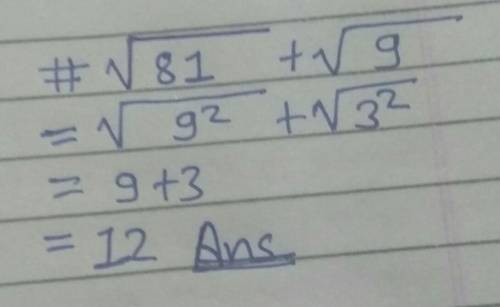 # √81 + √9
= √9² + √3²
= 9+3
= 12 Ans